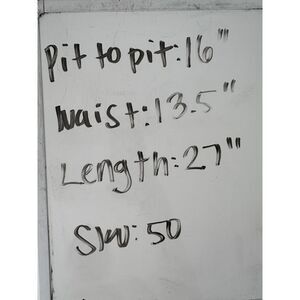 Pit to pit: 16"
Waist: 13.5"
Length: 27"
SKU: 50